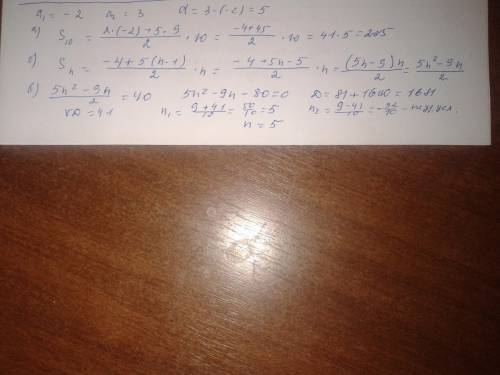 a₁ = -2   a₂ = 3   d = 3-(-2) = 5
а) S₁₀ = (2·(-2)+5·9)/2 · 10 = (-4+45)/2 · 10 = 41·5 = 205
б) Sₙ = (-4+5(n-1))/2 · n = (-4+5n-5)/2 · n = (5n-9)n/2 = (5n²-9n)/2
в) (5n²-9n)/2 = 40   5n²-9n-80=0   D = 81+1600 = 1681
√D = 41   n₁ = (9+41)/10 = 50/10 = 5   n₂ = (9-41)/10 = -32/10 -
n = 5